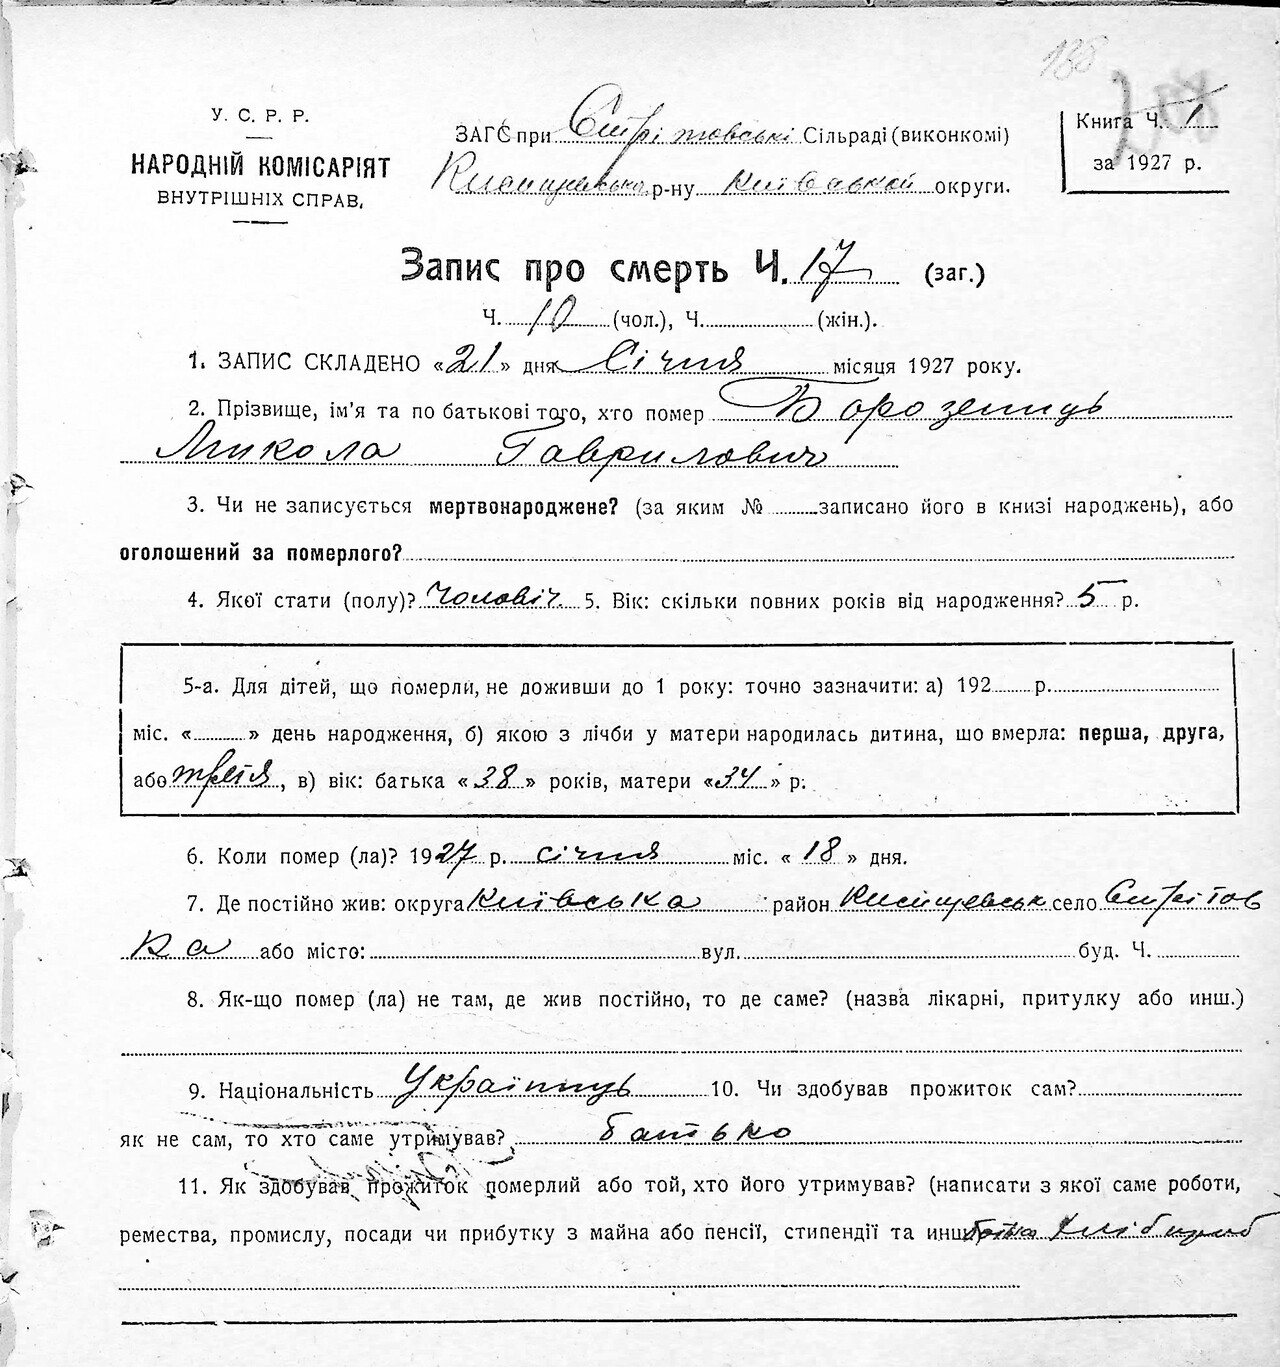 188
У. С. Р. Р.
НАРОДНІЙ КОМІСАРІЯТ
ВНУТРІШНІХ СПРАВ,
ЗАГС при Стрітовські Сільраді (виконкомі)
р-ну Київської округи.
Книга Ч. 1
за 1927 р.
Запис про смерть Ч. 17 (заг.)
Ч. 10 (чол.), Ч. (жін.).
1. ЗАПИС СКЛАДЕНО «21» дня Січня місяця 1927 року.
2. Прізвище, ім'я та по батькові того, хто помер Борозенець
Микола Гаврилович
3. Чи не записується мертвонароджене? (за яким № записано його в книзі народжень), або
оголошений за померлого?
4. Якої стати (полу)? чоловіч. 5. Вік: скільки повних років від народження? 5 р.
5-а. Для дітей, що померли, не доживши до 1 року: точно зазначити: а) 192 р.
міс. « » день народження, б) якою з лічби у матери народилась дитина, шо вмерла: перша, друга,
або третя, в) вік: батька «38» років, матери «34» р.
6. Коли помер (ла)? 1927 р. січня міс. «18» дня.
7. Де постійно жив: округа Київська район село Стрітов
ка або місто: вул. буд. Ч.
8. Як-що помер (ла) не там, де жив постійно, то де саме? (назва лікарні, притулку або инш.)
9. Національність Українець 10. Чи здобував прожиток сам?
як не сам, то хто саме утримував? батько
11. Як здобував прожиток померлий або той, хто його утримував? (написати з якої саме роботи,
ремества, промислу, посади чи прибутку з майна або пенсії, стипендії та инш. хлібороб